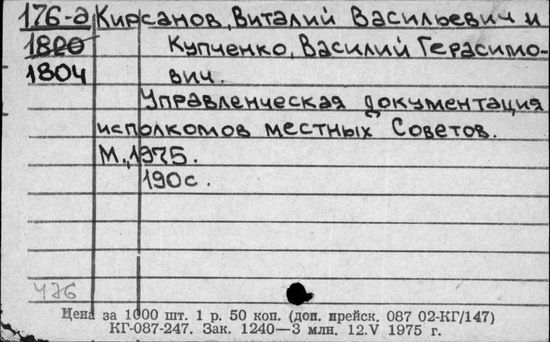 176-а Кирсанов, Виталий Васильевич и
1820 Купченко, Василий Герасимо-
1804 вич.
Управленческая документация
исполкомов местных Советов.
М., 1975.
190с.
476
Цена за 1000 шт. 1 р. 50 коп. (доп. прейск. 087 02-КГ/147)
КГ-087-247. Зак. 1240—3 млн. 12.V 1975 г.